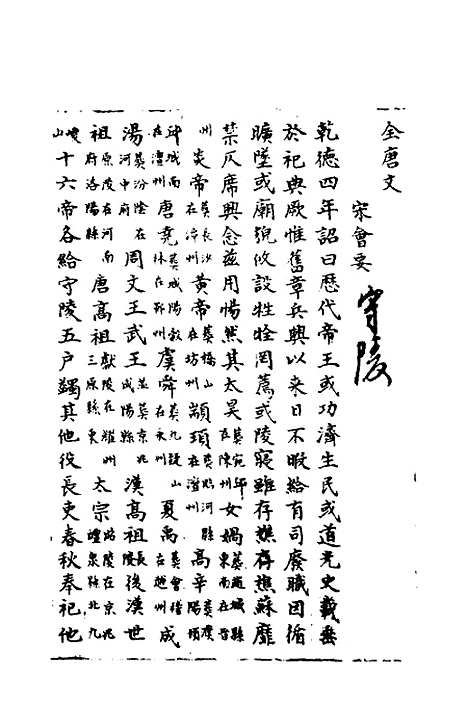 全唐文
宋會要 守陵
乾德四年詔曰歷代帝王或功濟生民或道光史載垂
於祀典厥惟舊章兵興以來日不暇給有司廢職因循
曠墜或廟貌攸設牲牷罔薦或陵寢雖存樵蘇靡
禁仄席興念茲用惕然其太昊葬宛邱在陳州女媧葬趙城縣東南在晉
州炎帝葬長沙在潭州黃帝葬橋山在坊州顓頊葬臨河縣在澶州高辛葬濮陽頓
邱城南在澶州唐堯葬城陽穀林在鄆州虞舜葬九疑山在永州夏禹葬會稽在越州成
湯葬汾陰在河中府周文王武王並葬京兆咸陽縣漢高祖長陵後漢世
祖原陵在河南府洛陽縣唐高祖獻陵在耀州三原縣東太宗昭陵在京兆醴泉縣北九
嵕山十六帝各給守陵五户蠲其他役長吏春秋奉祀他